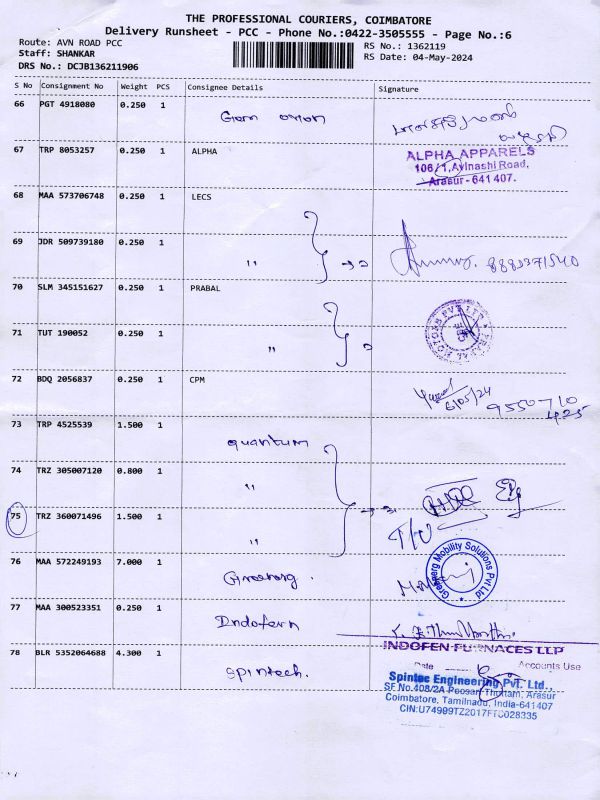 THE PROFESSIONAL COURIERS, COIMBATORE
Delivery Runsheet - PCC - Phone No.:0422-3505555 - Page No.:6
Route: AVN ROAD PCC
RS No.: 1362119
Staff: SHANKAR
RS Date: 04-May-2024
DRS No.: DCJB136211906
S No Consignment No Weight PCS Consignee Details Signature
66 PGT 4918080 0.250 1
67 TRP 8053257 0.250 1 ALPHA
ALPHA APPARELS
106/1, Avinashi Road,
Arasur - 641 407.
68 MAA 573706748 0.250 1 LECS
69 JDR 509739180 0.250 1 "
70 SLM 345151627 0.250 1 PRABAL
71 TUT 190052 0.250 1 "
72 BDQ 2056837 0.250 1 CPM
6/05/24
9550710
425
73 TRP 4525539 1.500 1 quantum
74 TRZ 305007120 0.800 1 "
75 TRZ 360071496 1.500 1 "
76 MAA 572249193 7.000 1
Greenerg Mobility Solutions Pvt Ltd
77 MAA 300523351 0.250 1 Indofern
INDOFEN FURNACES LLP
Date Accounts Use
78 BLR 5352064688 4.300 1 Spintech.
Spintec Engineering Pvt. Ltd.,
SF No.408/2A Poosari Thottam, Arasur
Coimbatore, Tamilnadu, India-641407
CIN:U74999TZ2017FTC028335